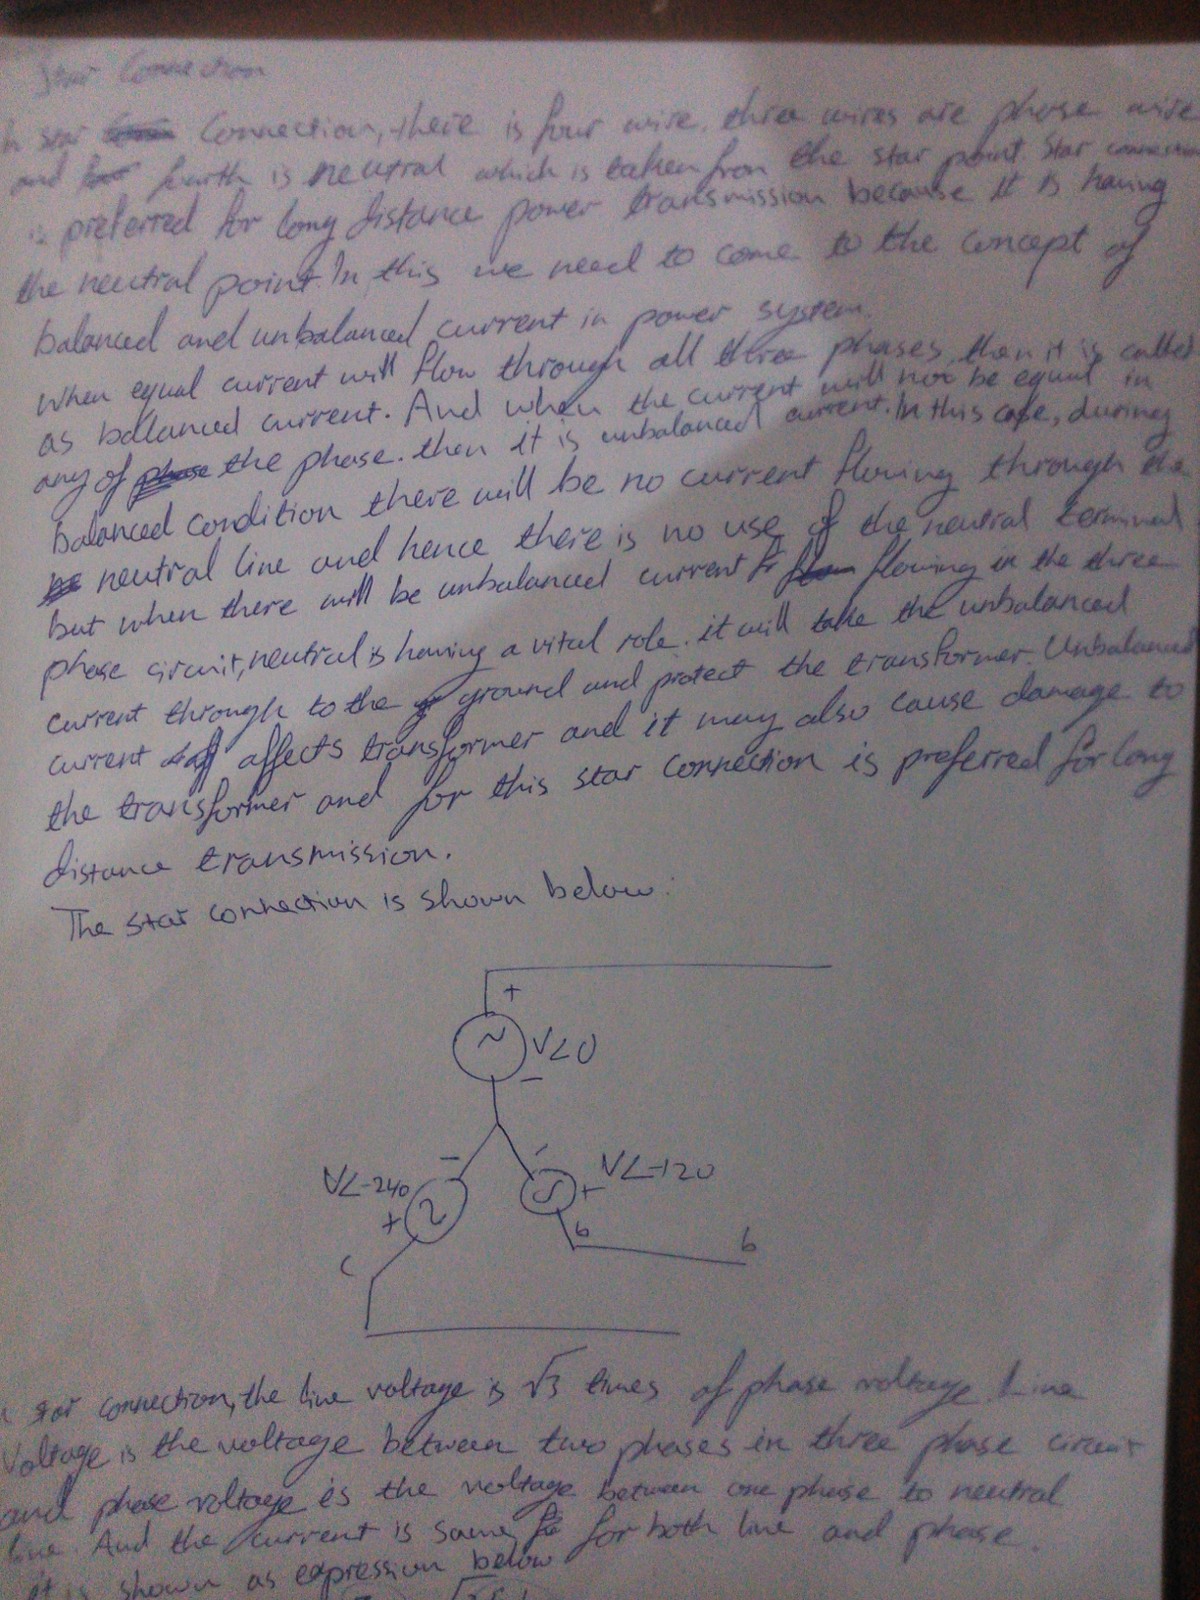 Star Connection
In star Connection, there is four wire. three wires are phase wire
and fourth is neutral which is taken from the star point. Star connection
is preferred for long distance power transmission because it is having
the neutral point. In this we need to come to the concept of
balanced and unbalanced current in power system.
When equal current will flow through all three phases, then it is called
as balanced current. And when the current will not be equal in
any of phase the phase. then it is unbalanced current. In this case, during
balanced condition there will be no current flowing through the
neutral line and hence there is no use of the neutral terminal
but when there will be unbalanced current flowing in the three
phase circuit, neutral is having a vital role. it will take the unbalanced
current through to the ground and protect the transformer. Unbalanced
current affects transformer and it may also cause damage to
the transformer and for this star connection is preferred for long
distance transmission.
The star connection is shown below:
+
~ V∠0
-
- -
V∠-240 V∠-120
+ +
c b b
star connection, the line voltage is √3 times of phase voltage. Line
Voltage is the voltage between two phases in three phase circuit
and phase voltage is the voltage between one phase to neutral
line. And the current is same for both line and phase.
It is shown as expression below